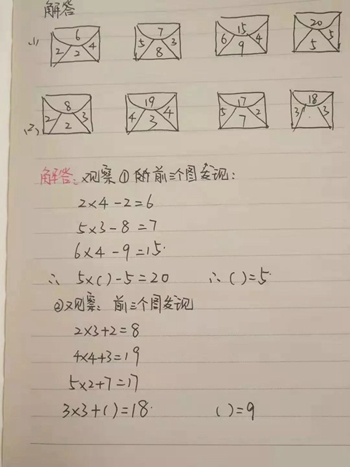 解答
(1) 6 2 4 2 7 5 3 8 15 6 4 9 20 5 5
(2) 8 2 3 2 19 4 4 3 17 5 2 7 18 3 3
解答: 观察①所前三个图发现:
2×4-2=6
5×3-8=7
6×4-9=15.
∴ 5×( )-5=20 ∴ ( )=5
②观察: 前三个图发现
2×3+2=8
4×4+3=19
5×2+7=17
3×3+( )=18. ( )=9